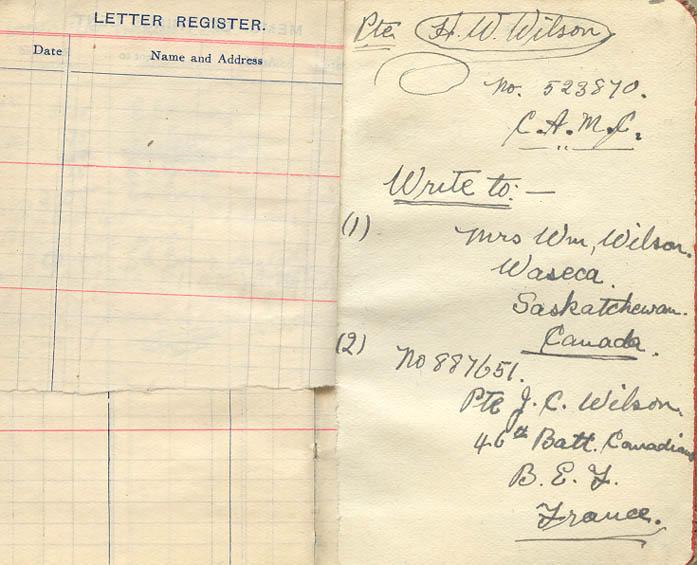 LETTER REGISTER.
Date
Name and Address
Pte H. W. Wilson
No. 523870.
C.A.M.C.
Write to:—
(1)
Mrs Wm, Wilson.
Waseca.
Saskatchewan.
Canada.
(2)
No 887651.
Pte J. C. Wilson.
46th Batt. Canadians
B. E. F.
France.